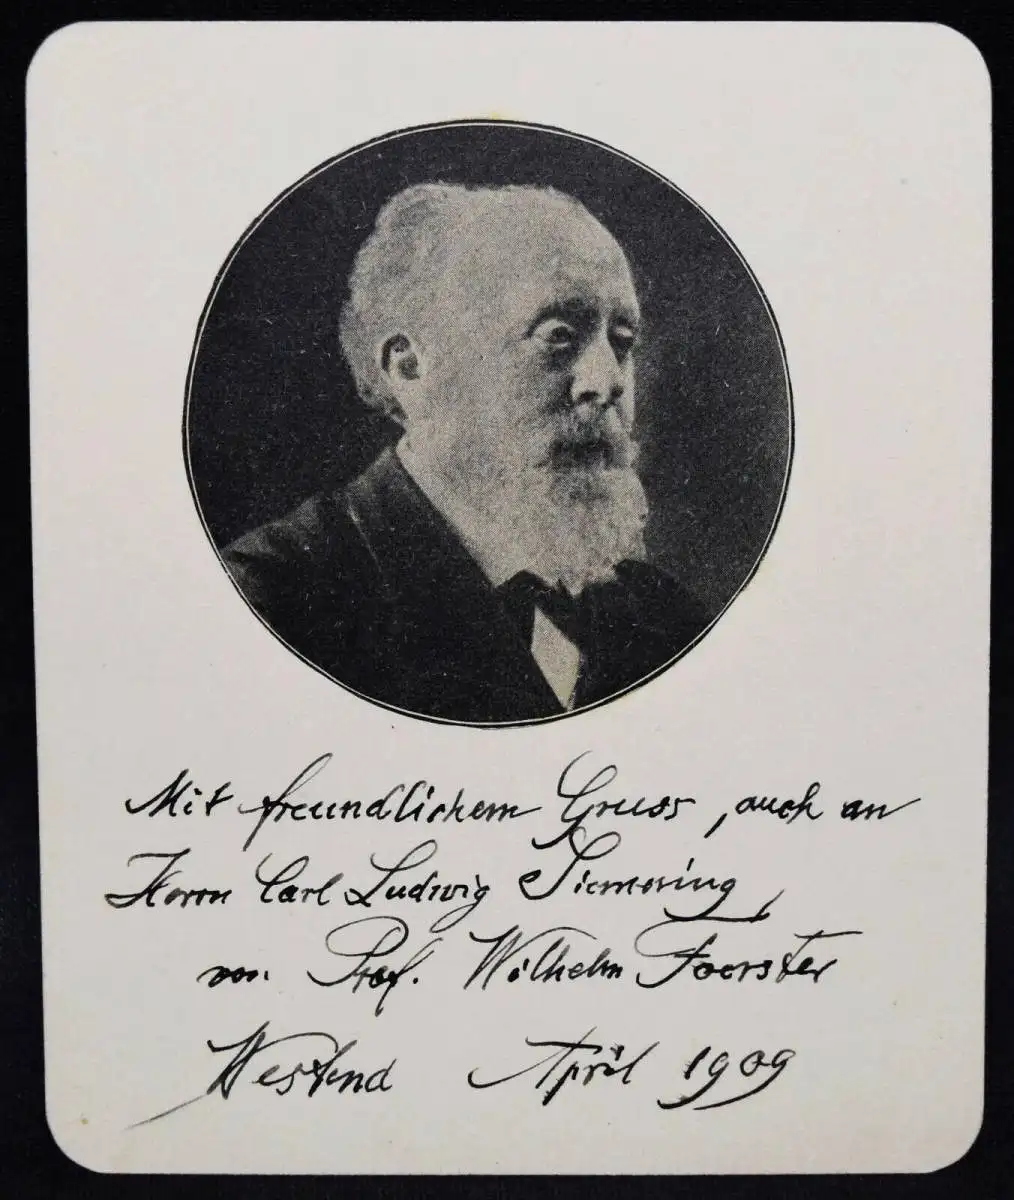 Mit freundlichem Gruss, auch an
Herrn Carl Ludwig Siemering,
von Prof. Wilhelm Foerster
Westend April 1909